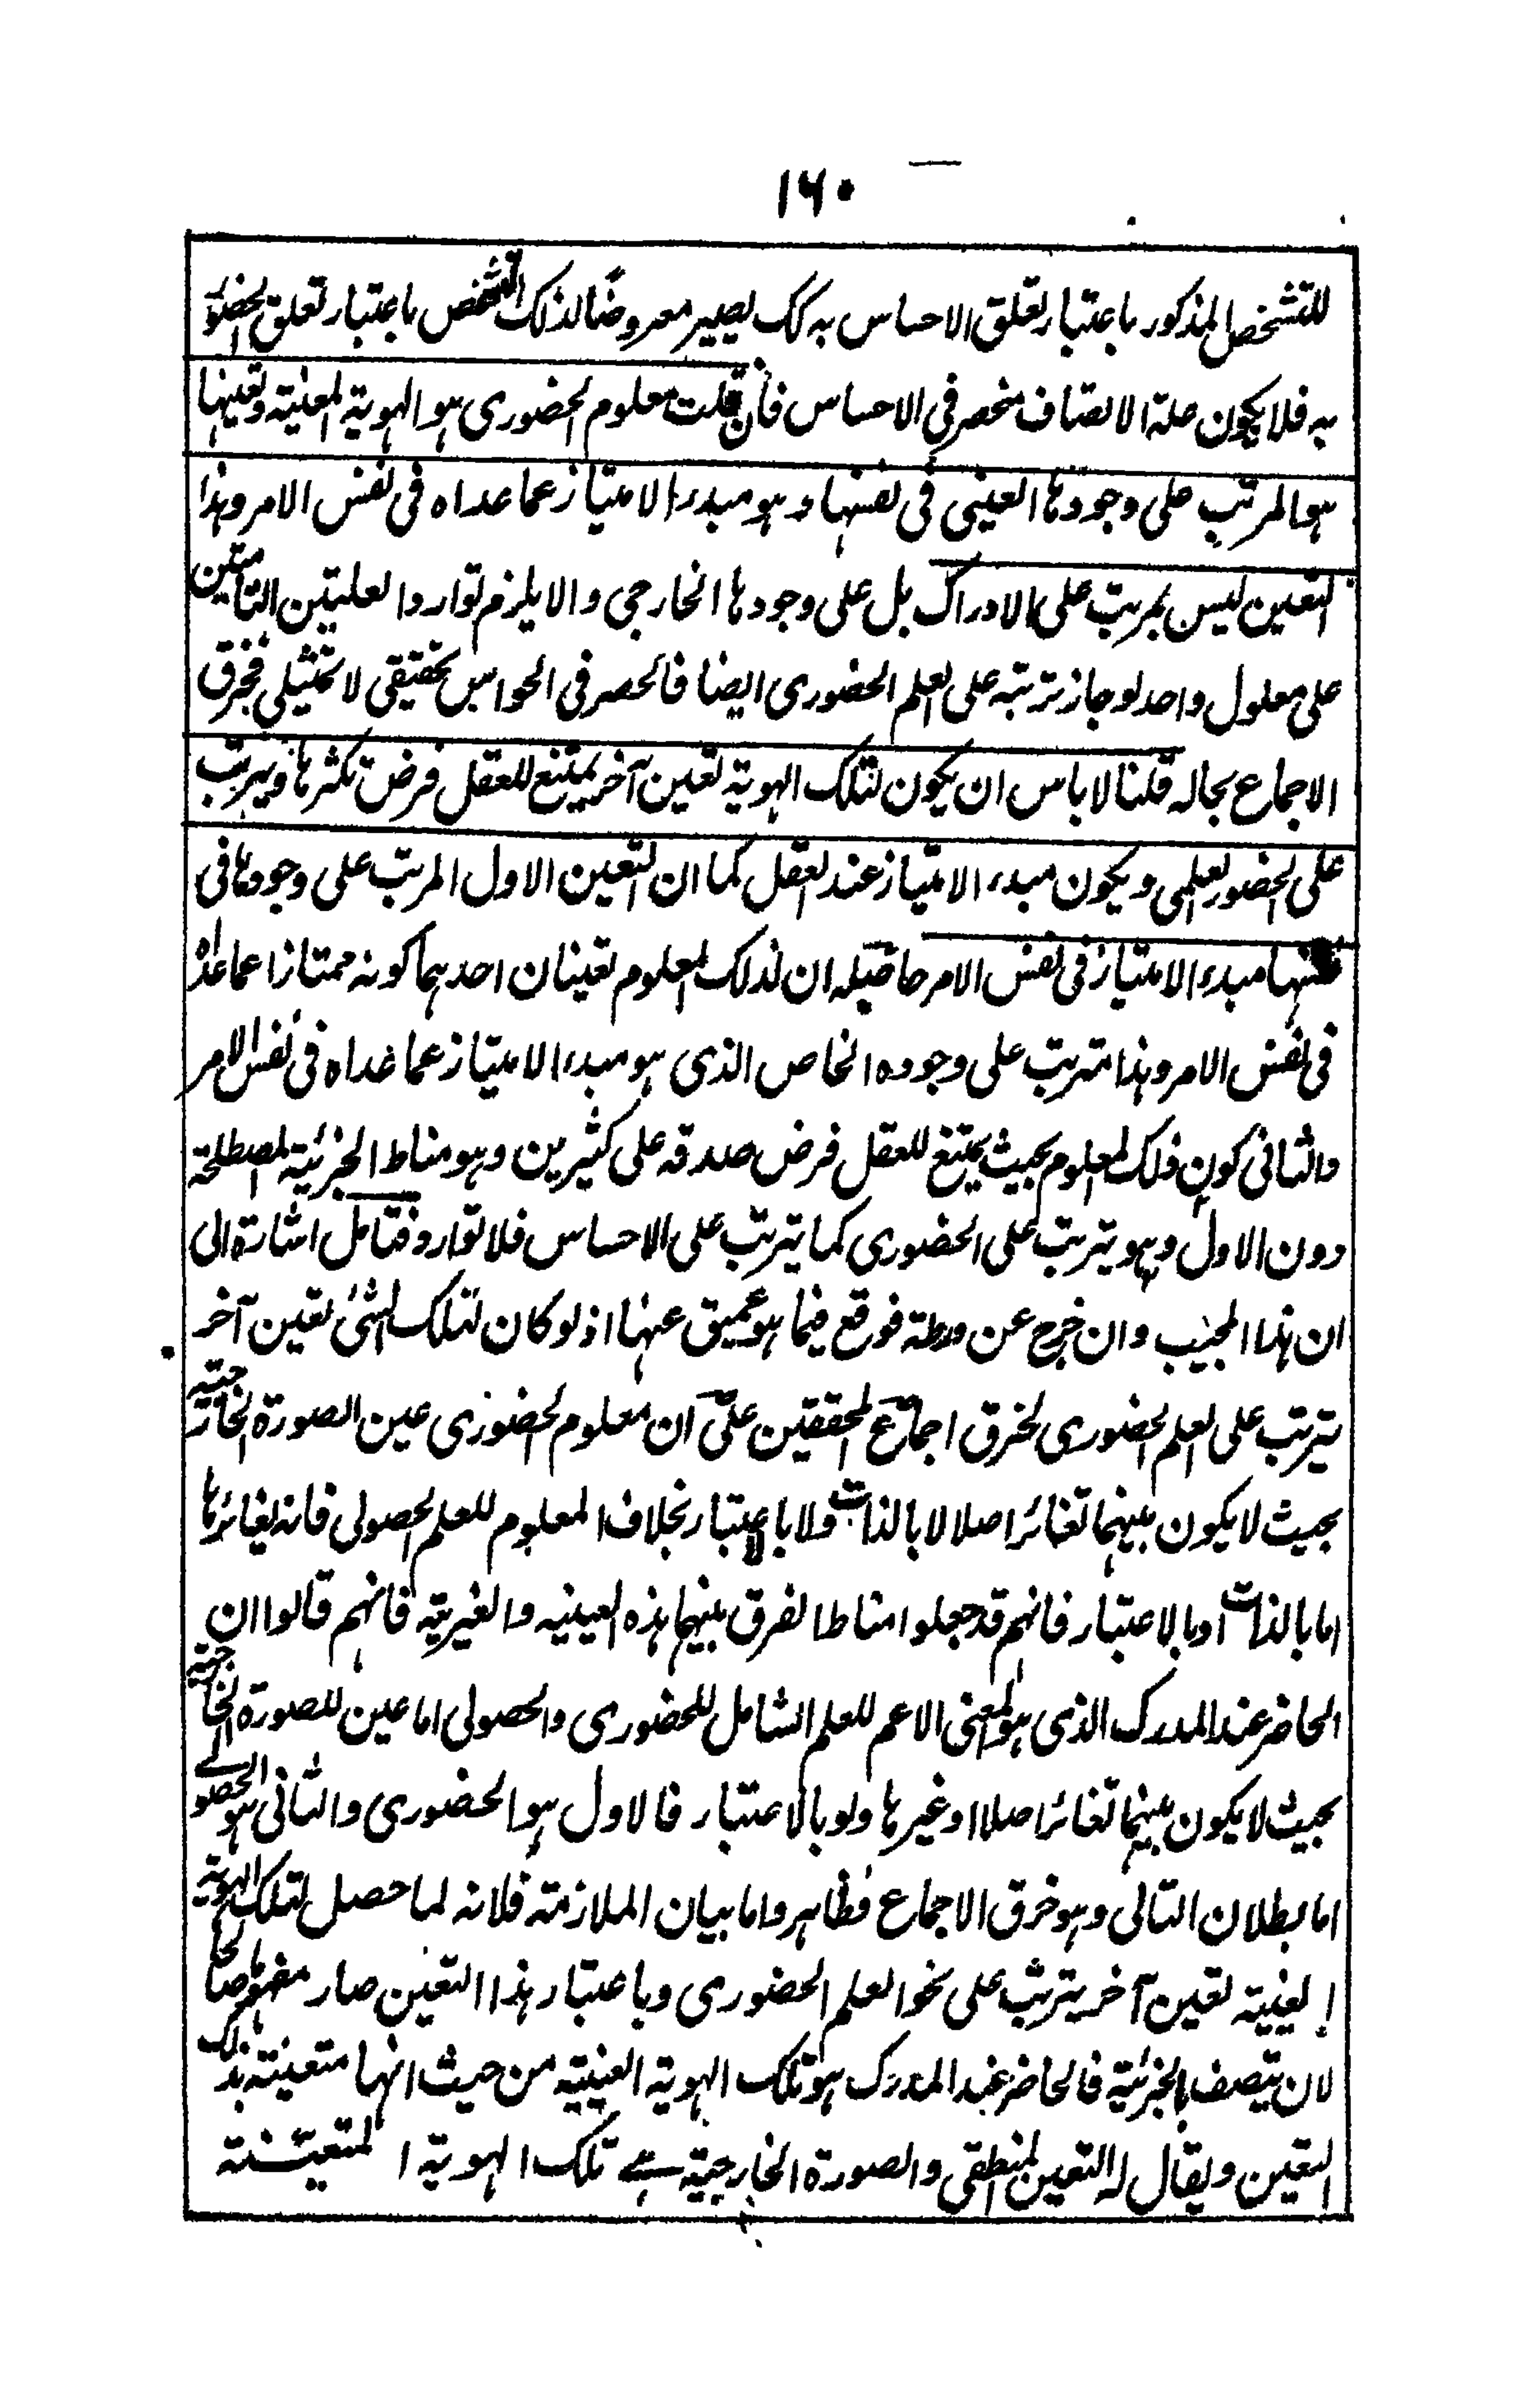 ١٦٠
للتشخص المذكور باعتبار تعلق الاحساس به كك يصير معروضا لذلك التشخص باعتبار تعلق الحضورى
به فلا يكون صلة الاتصاف منحصر فى الاحساس فان قلت معلوم الحضورى هو الهوية العينية وتعينها
هو المرتب على وجودها العينى فى نفسها وهو مبدء الامتياز عما عداه فى نفس الامر وهذا
التعين ليس بمرتب على الادراك بل على وجودها الخارجى والا يلزم توارد العلتين التامتين
على معلول واحد لو جاز ترتبه على العلم الحضورى ايضا فالحصر فى الحواس تحقيقى لا تمثيلى فخرق
الاجماع بحاله قلنا لا باس ان يكون لتلك الهوية تعين آخر يمتنع للعقل فرض تكثرها ويترتب
على الحضور العلمى ويكون مبدء الامتياز عند العقل كما ان التعين الاول المرتب على وجودها فى
نفسها مبدء الامتياز فى نفس الامر حاصله ان لذلك المعلوم تعينان احدهما كونه ممتازا عما عداه
فى نفس الامر وهذا مترتب على وجوده الخاص الذى هو مبدء الامتياز عما عداه فى نفس الامر
والثانى كون ذلك المعلوم بحيث يمتنع للعقل فرض صدقه على كثيرين وهو مناط الجزئية المصطلحة
دون الاول وهو يترتب على الحضورى كما يترتب على الاحساس فلا توارد فتامل اشارة الى
ان هذا المجيب وان خرج عن ورطة فوقع فيما هو عميق عنها اذ لو كان لتلك الشئ تعين آخر
يترتب على العلم الحضورى لخرق اجماع المحققين على ان معلوم الحضورى عين الصورة الخارجية
بحيث لا يكون بينهما تغائر اصلا لا بالذات ولا بالاعتبار بخلاف المعلوم للعلم الحصولى فانه يغائرها
اما بالذات او بالاعتبار فانهم قد جعلوا مناط الفرق بينهما هذه العينيه والغيرية فانهم قالوا ان
الحاضر عند المدرك الذى هو المعنى الاعم للعلم الشامل للحضورى والحصولى اما عين للصورة الخارجية
بحيث لا يكون بينهما تغائر اصلا او غيرها ولو بالاعتبار فالاول هو الحضورى والثانى هو الحصولے
اما بطلان التالى وهو خرق الاجماع فظاهر واما بيان الملازمته فلانه لما حصل لتلك الهوية
العينية تعين آخر يترتب على نحو العلم الحضورى وباعتبار هذا التعين صار مفهومها صالحا
لان يتصف بالجزئية فالحاضر عند المدرك هو تلك الهوية العينية من حيث انها متعينة بذلك
التعين ويقال له التعين المنطقى والصورة الخارجية هے تلك الهوية المتعينة